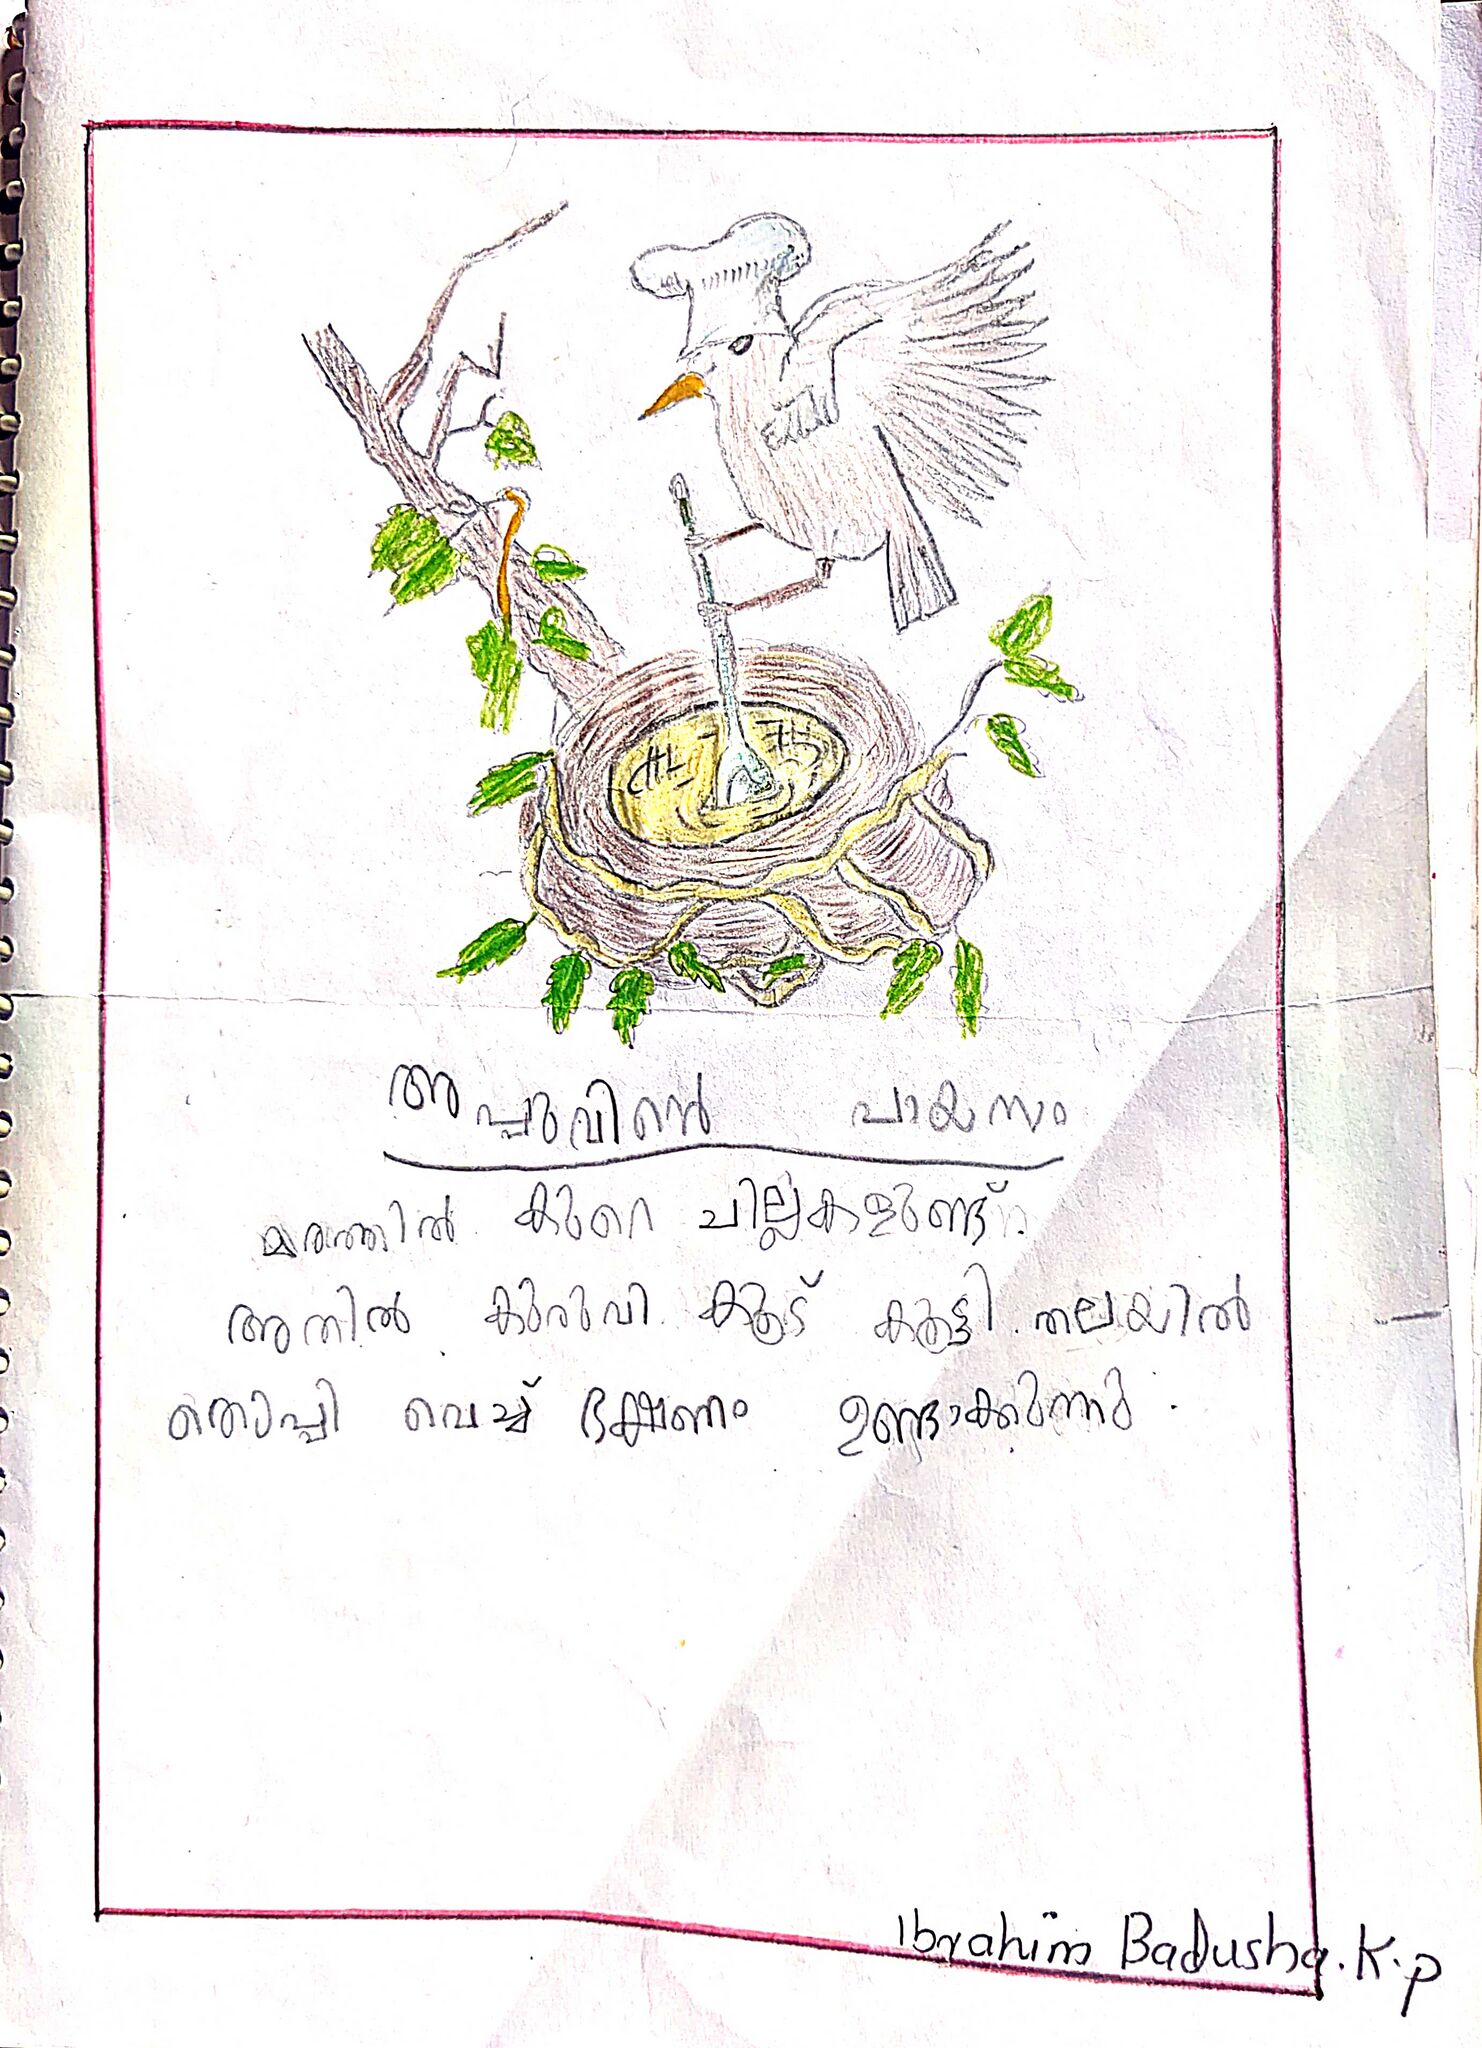 അപ്പുവിന്റെ പായസം
മരത്തിൽ കുറെ ചില്ലകളുണ്ട്.
അതിൽ കുരുവി കൂട് കൂട്ടി. തലയിൽ
തൊപ്പി വെച്ച് ഭക്ഷണം ഉണ്ടാക്കുന്നു.
Ibrahim Badusha. K. p